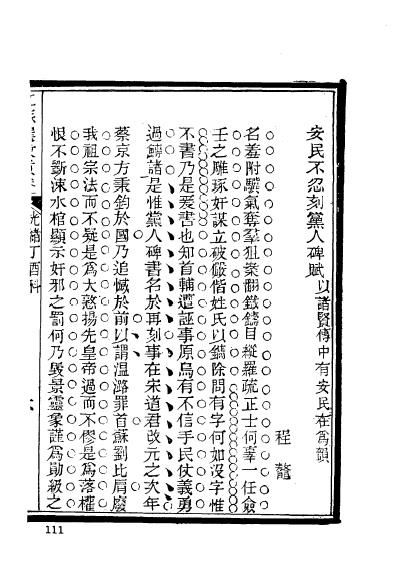 安民不忍刻黨人碑賦 以諸賢傳中有安民在爲韻
程鼇
名羞附驥氣奪羣狙槊翻鐵鑄目縱羅疏正士何辜一任僉
壬之雕琢奸謀立破儼偕姓氏以鐫除問有字何如沒字惟
不書乃是爰書也知首輔遣誣事原烏有不信手民仗義勇
過鱄諸是惟黨人碑書名於再刻事在朱道君改元之次年
蔡京方秉鈞於國乃追憾於前以謂溫潞罪首蘇劉比肩廢
我祖宗法而不疑是爲大憝揚先皇帝過而不僇是爲落權
恨不斵涑水棺顯示奸邪之罰何乃毀景靈象謹爲勛級之
光緒丁酉科
111